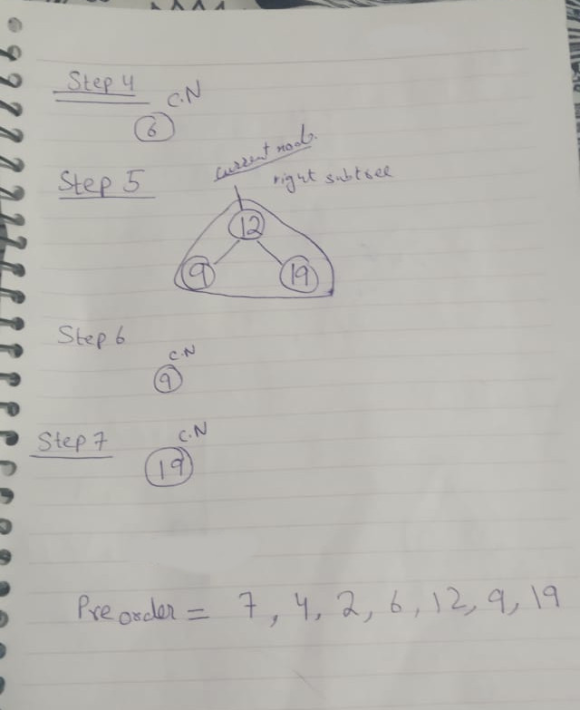 Step 4
C.N
6
Step 5
current node
right subtree
12
9
19
Step 6
C.N
9
Step 7
C.N
19
Preorder = 7, 4, 2, 6, 12, 9, 19